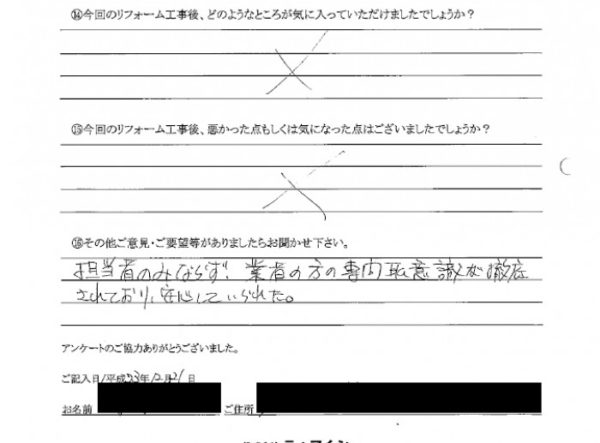 ⑭今回のリフォーム工事後、どのようなところが気に入っていただけましたでしょうか?
⑮今回のリフォーム工事後、悪かった点もしくは気になった点はございましたでしょうか?
⑯その他ご意見・ご要望等がありましたらお聞かせ下さい。
担当者のみならず、業者の方の専門職意識が徹底
されており、安心していられた。
アンケートのご協力ありがとうございました。
ご記入日/平成23年12月21日
お名前 ご住所